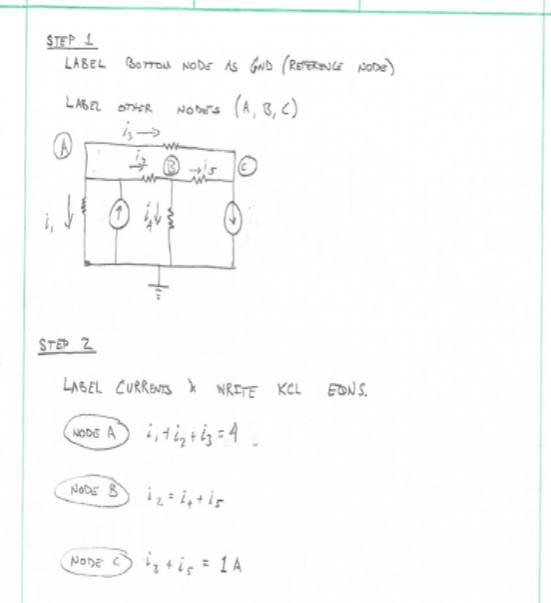 STEP 1
LABEL BOTTOM NODE AS GND (REFERENCE NODE)
LABEL OTHER NODES (A, B, C)
i₃ →
A
i₂ →
B
→ i₅
C
i₁ ↓
↑
i₄ ↓
↓
STEP 2
LABEL CURRENTS & WRITE KCL EQNS.
NODE A i₁ + i₂ + i₃ = 4
NODE B i₂ = i₄ + i₅
NODE C i₃ + i₅ = 1 A